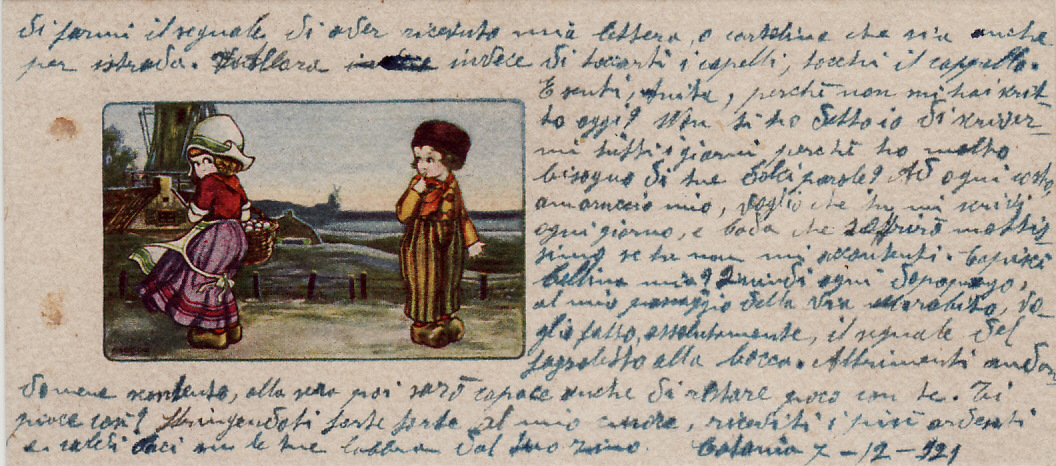 di farmi il segnale di aver ricevuto mia lettera, o cartolina che sia anche
per istrada. Allora invece di toccarti i capelli, tocchi il cappello.
E senti, perchè non mi hai scrit-
to oggi? Non ti ho detto io di scriver-
mi tutti i giorni perchè ho molto
bisogno di tue dolci parole? Ad ogni costo,
amoruccio mio, voglio che tu mi scriva
ogni giorno, e bada che soffrirò moltis-
simo se tu non mi accontenti. Capisci
bellina mia? Quindi ogni dopopranzo,
al mio passaggio della Via vo-
glio fatto, assolutamente, il segnale del
fazzoletto alla bocca. Altrimenti andan-
domene scontento, alla sera poi sarò capace anche di restare poco con te. Ti
piace così? Stringendoti forte forte al mio cuore, riceviti i più ardenti
e caldi baci su le tue labbra dal tuo
Catania 7-12-921